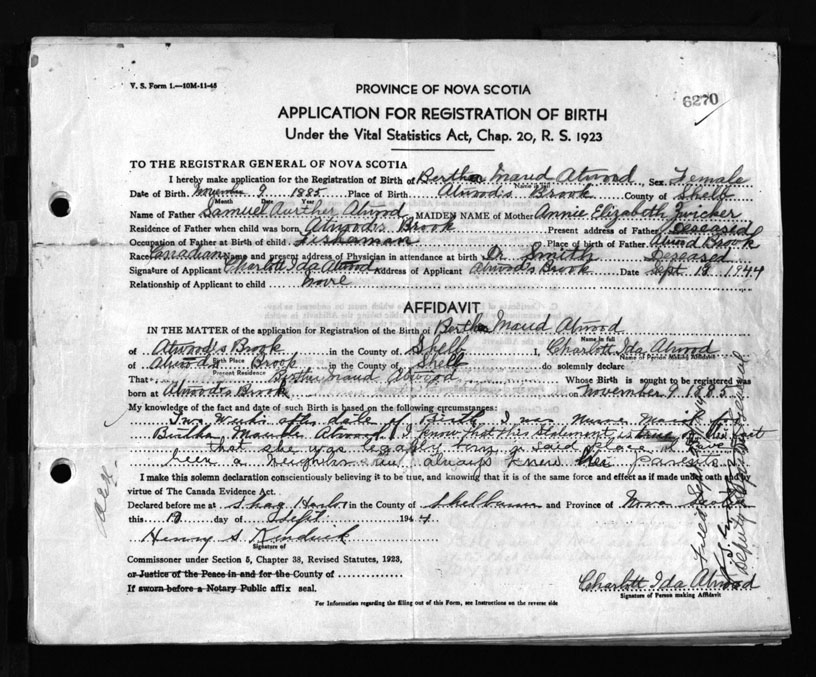 V. S. Form 1.—10M-11-45
PROVINCE OF NOVA SCOTIA
6270
APPLICATION FOR REGISTRATION OF BIRTH
Under the Vital Statistics Act, Chap. 20, R. S. 1923
TO THE REGISTRAR GENERAL OF NOVA SCOTIA
I hereby make application for the Registration of Birth of Bertha Maud Atwood Sex Female
Name in full
Date of Birth November 9 1885 Place of Birth Atwood's Brook County of Shelb
Month Date Year
Name of Father Samuel Aurther Atwood MAIDEN NAME of Mother Annie Elizabeth Zwicker
Residence of Father when child was born Atwood's Brook Present address of Father Deseased
Occupation of Father at Birth of child Fisherman Place of birth of Father Atwood Brook
Race Canadian Name and present address of Physician in attendance at birth Dr. Smith Deseased
Signature of Applicant Charlott Ida Atwood Address of Applicant Atwood's Brook Date Sept 19 1944
Relationship of Applicant to child None
AFFIDAVIT
IN THE MATTER of the application for Registration of the Birth of Bertha Maud Atwood
Name in full
of Atwood's Brook in the County of Shelb I, Charlott Ida Atwood
Birth Place Name of Person Making Affidavit
of Atwood's Brook in the County of Shelb do solemnly declare
Present Residence
That Bertha Maud Atwood Whose Birth is sought to be registered was
born at Atwood's Brook on November 9 1885
My knowledge of the fact and date of such Birth is based on the following circumstances:
Two Weeks after date of Birth I was Nurse Maid for
Bertha Maude Atwood I know that this statement is true
that she was legally born at said place. I have
been a neighbor and always knew her Parents
I make this solemn declaration conscientiously believing it to be true, and knowing that it is of the same force and effect as if made under oath and by
virtue of The Canada Evidence Act.
Declared before me at Shag Harbor in the County of Shelburne and Province of Nova Scotia
this 19 day of Sept 1944
Henry S. Kendrick
Signature of
Commissioner under Section 5, Chapter 38, Revised Statutes, 1923,
or Justice of the Peace in and for the County of
If sworn before a Notary Public affix seal.
Charlott Ida Atwood
Signature of Person making Affidavit
For Information regarding the filling out of this Form, see Instructions on the reverse side